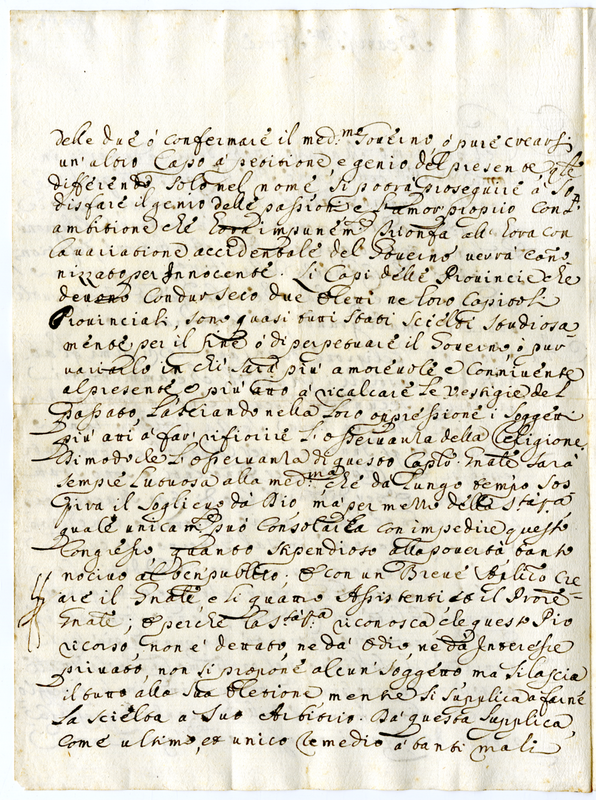 delle due ò confermare il med.me Governo ò pure crearsi
un'altro Capo à petitione, e genio del presente
differendo solo nel nome si potrà proseguire à so
disfare il genio delle passioni e l'amor proprio con l'
ambitione che impunem.e trionfa all'hora con
la variatione accidentale del Governo verrà cano
nizzato per Innocente. Li Capi delle Provincie che
devono condur seco due Eletti ne loro Capitoli
Provinciali, sono quasi tutti stati scielti studiosa
mente per il fine ò di perpetuare il Governo, ò pur
variarlo in chi sarà più amorevole e connivente
al presente e più atto à ricalcare le vestigie del
passato, lasciando nella loro oppressione i soggetti
più atti à far rifiorire l'osservanza della Religione
Di modo che l'osservanza di questo Capto. Gnãle sarà
sempre luttuosa alla med.ma che da lungo tempo sos
pira il soglievo da Dio mà per mezzo della
quale unicam.e può consolarla con impedire questo
Congresso quanto stipendioso alla povertà tanto
nocivo al ben publico; et con un Breve Aplico cre
are il Gnãle, e li quattro Assistenti et il Procre
Gnãle; et perche la riconosca che questo Pio
ricorso non è dettato ne da odio ne da Interesse
privato, non si propone alcun soggetto ma si lascia
il tutto alla sua Eletione mentre si supplica a farne
la scielta a suo Arbitrio. Da questa supplica,
come ultimo, et unico remedio à tanti mali